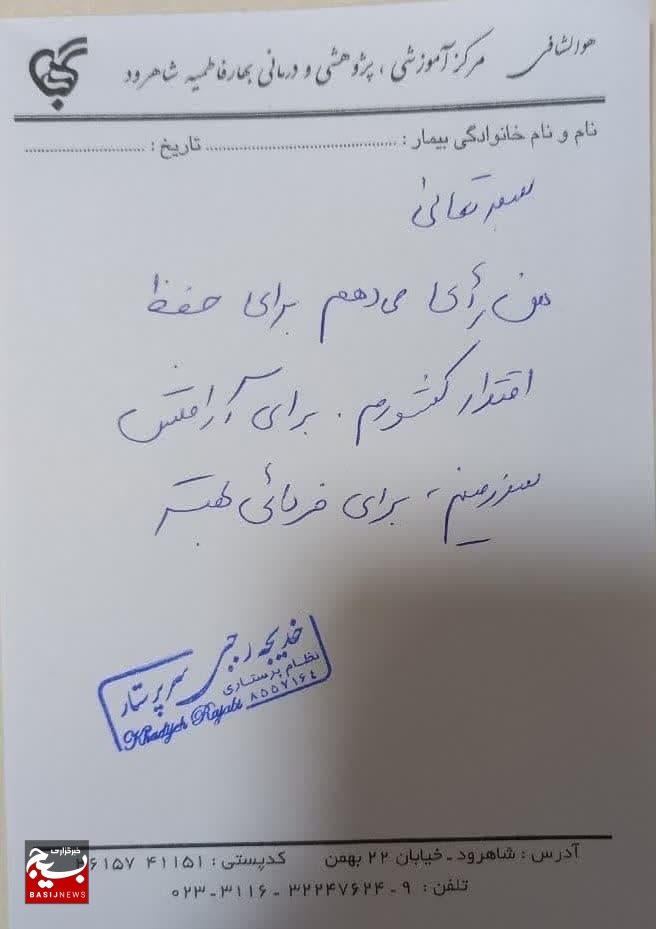 هوالشافی
مرکز آموزشی ، پژوهشی و درمانی بهار فاطمیه شاهرود
نام و نام خانوادگی بیمار : ........................................ تاریخ : .........................
بسمه تعالی
من رأی می‌دهم برای حفظ
اقتدار کشورم . برای آرامش
سرزمینم ، برای فردائی بهتر
خدیجه رجبی
سرپرستار
نظام پرستاری
۸۵۵۷۱۶٤
Khadyeh Rajabi
آدرس : شاهرود ـ خیابان ۲۲ بهمن کدپستی : ۴۱۱۵۱ ۳۶۱۵۷
تلفن : ۹ - ۳۲۲۴۷۶۲۴ - ۳۱۱۶-۰۲۳
خبرگزاری
بسیج
BASIJNEWS